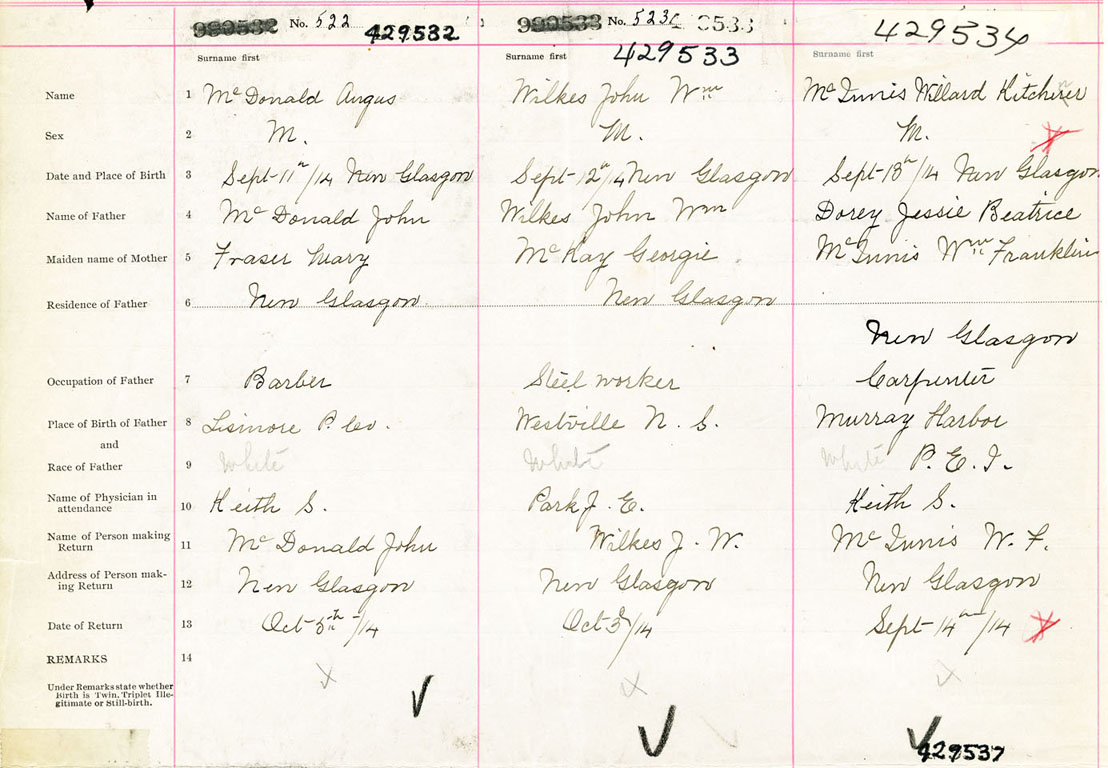 No. 522 429532 No. 523 429533 429534
Surname first Surname first Surname first
Name 1 McDonald Angus Wilkes John Wm McInnis Willard Kitchener
Sex 2 M. M. M.
Date and Place of Birth 3 Sept 11th/14 New Glasgow Sept 12th/14 New Glasgow Sept 13th/14 New Glasgow
Name of Father 4 McDonald John Wilkes John Wm Dorey Jessie Beatrice
Maiden name of Mother 5 Fraser Mary McKay Georgie McInnis Wm Franklin
Residence of Father 6 New Glasgow New Glasgow
New Glasgow
Occupation of Father 7 Barber Steel worker Carpenter
Place of Birth of Father 8 Lismore P. Co. Westville N. S. Murray Harbor
and
Race of Father 9 White White White P. E. I.
Name of Physician in
attendance 10 Keith S. Park J. E. Keith S.
Name of Person making
Return 11 McDonald John Wilkes J. W. McInnis W. F.
Address of Person mak-
ing Return 12 New Glasgow New Glasgow New Glasgow
Date of Return 13 Oct 5th/14 Oct 3/14 Sept 14th/14
REMARKS 14
Under Remarks state whether
Birth is Twin, Triplet Ille-
gitimate or Still-birth.
429537